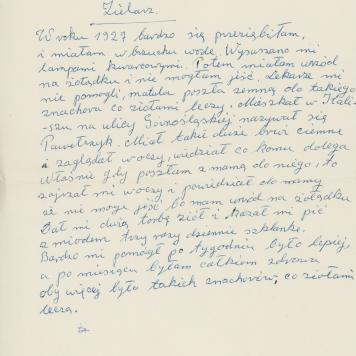 Zielarz.
W roku 1927 bardzo się przeziębiłam,
i miałam w brzuchu wodę. Wysuszano mi
lampami kwarcowymi. Potem miałam wrzód
na żołądku i nie mogłam jeść. Lekarze mi
nie pomogli, matula poszła zemną do takiego
znachora co ziołami leczy. Mieszkał w Kali-
-szu na ulicy Górnośląskiej nazywał się
Pawełczyk. Miał takie duże brwi ciemne
i zaglądał w oczy, widział co komu dolega
Właśnie gdy poszłam z mamą do niego, to
zajrzał mi w oczy i powiedział do mamy
że nie mogę jeść bo mam wrzód na żołądku
Dał mi dużą torbę ziół i kazał mi pić
z miodem trzy razy dziennie szklankę.
Bardzo mi pomógł po tygodniu było lepiej,
a po miesiącu byłam całkiem zdrowa
oby więcej było takich znachorów, co ziołami
leczą.